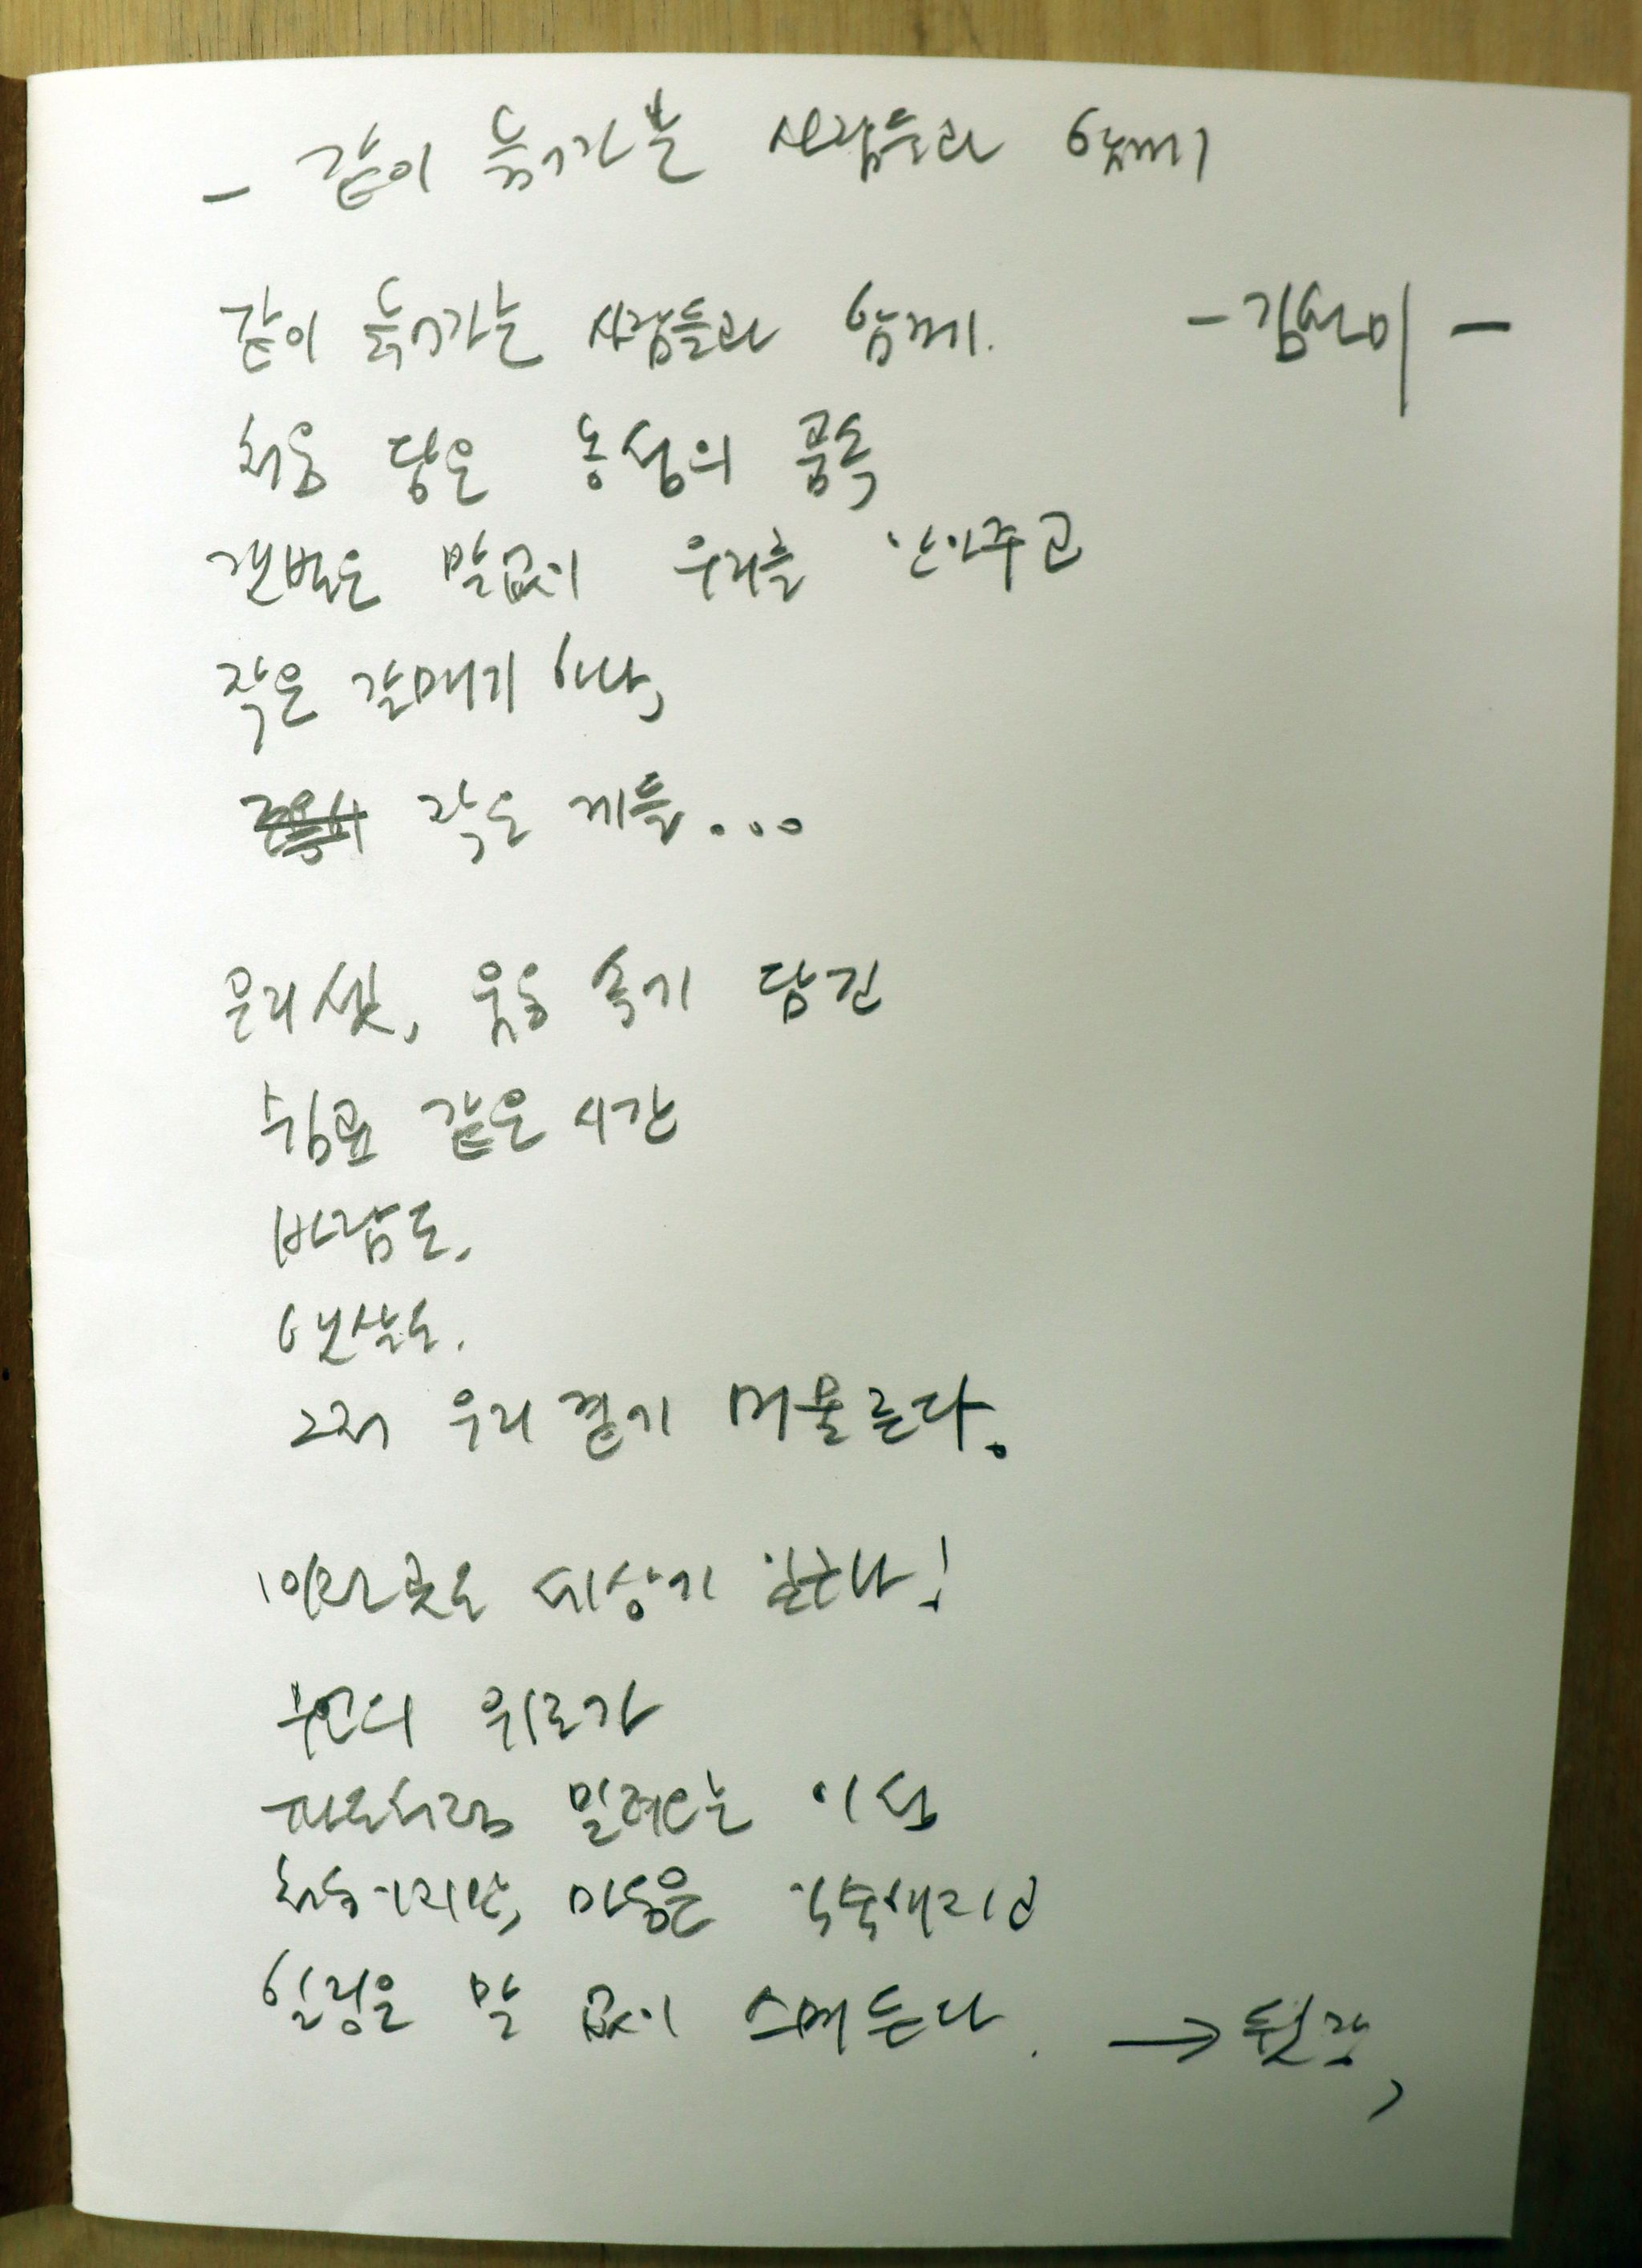 - 같이 늙어가는 사람들과 함께
같이 늙어가는 사람들과 함께.
- 김선미 -
처음 닿은 동섬의 품속
갯벌은 말없이 우리를 안아주고
작은 갈매기 하나,
작은 게들...
우리 셋, 웃음 속에 담긴
쉼표 같은 시간
바람도,
햇살도,
그저 우리 곁에 머물른다.
이런 곳도 세상에 있구나!
위로가
파도처럼 밀려오는 이 섬
처음이지만, 마음은 익숙해지고
힐링은 말 없이 스며든다. → 뒷장,